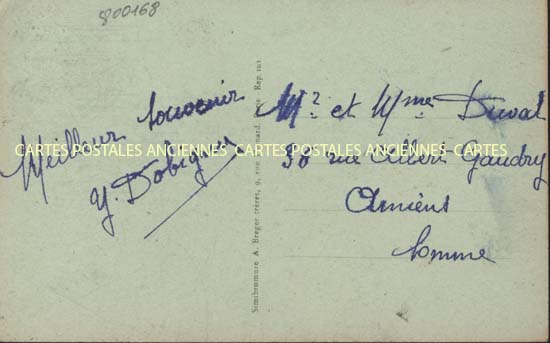 800168
Meilleur souvenir
Y. Dobigny
Mr et Mme Duval
38 rue Albert Gaudry
Amiens
Somme
CARTES POSTALES ANCIENNES CARTES POSTALES ANCIENNES CARTES
Simibromure A. Breger frères, 9, rue